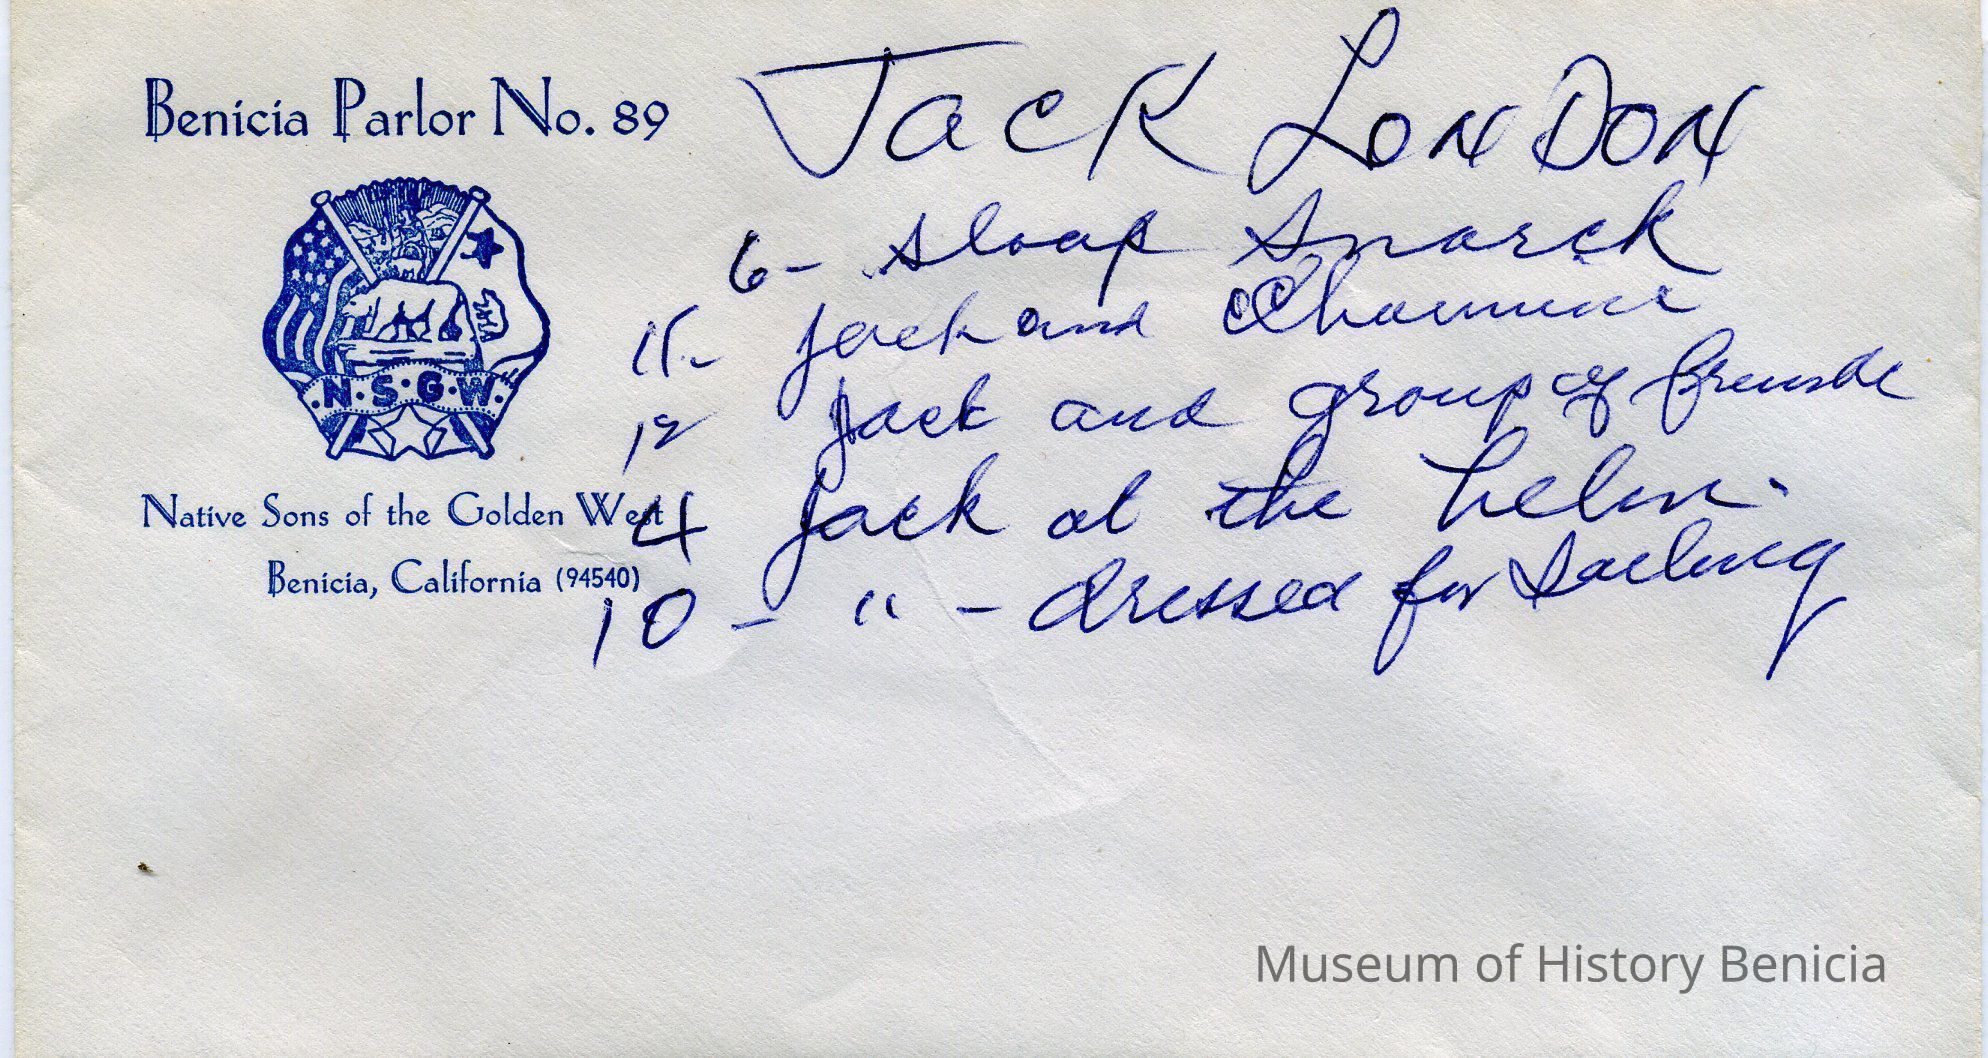 Benicia Parlor No. 89
N·S·G·W·
Native Sons of the Golden West
Benicia, California (94540)
JACK LONDON
6- sloop Snarck
11- Jack and Charmine
12 Jack and group of friends
4 Jack at the helm.
10 - " - dressed for sailing
Museum of History Benicia